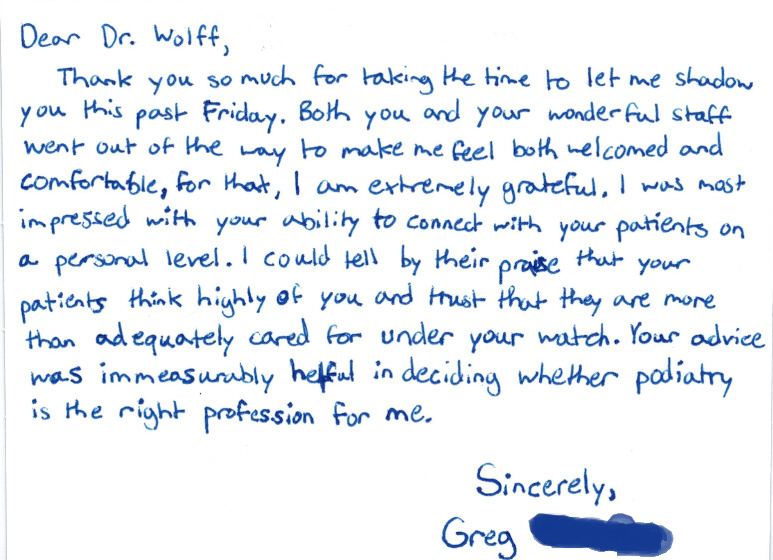 Dear Dr. Wolff,
Thank you so much for taking the time to let me shadow
you this past Friday. Both you and your wonderful staff
went out of the way to make me feel both welcomed and
comfortable, for that, I am extremely grateful. I was most
impressed with your ability to connect with your patients on
a personal level. I could tell by their praise that your
patients think highly of you and trust that they are more
than adequately cared for under your watch. Your advice
was immeasurably helpful in deciding whether podiatry
is the right profession for me.
Sincerely,
Greg